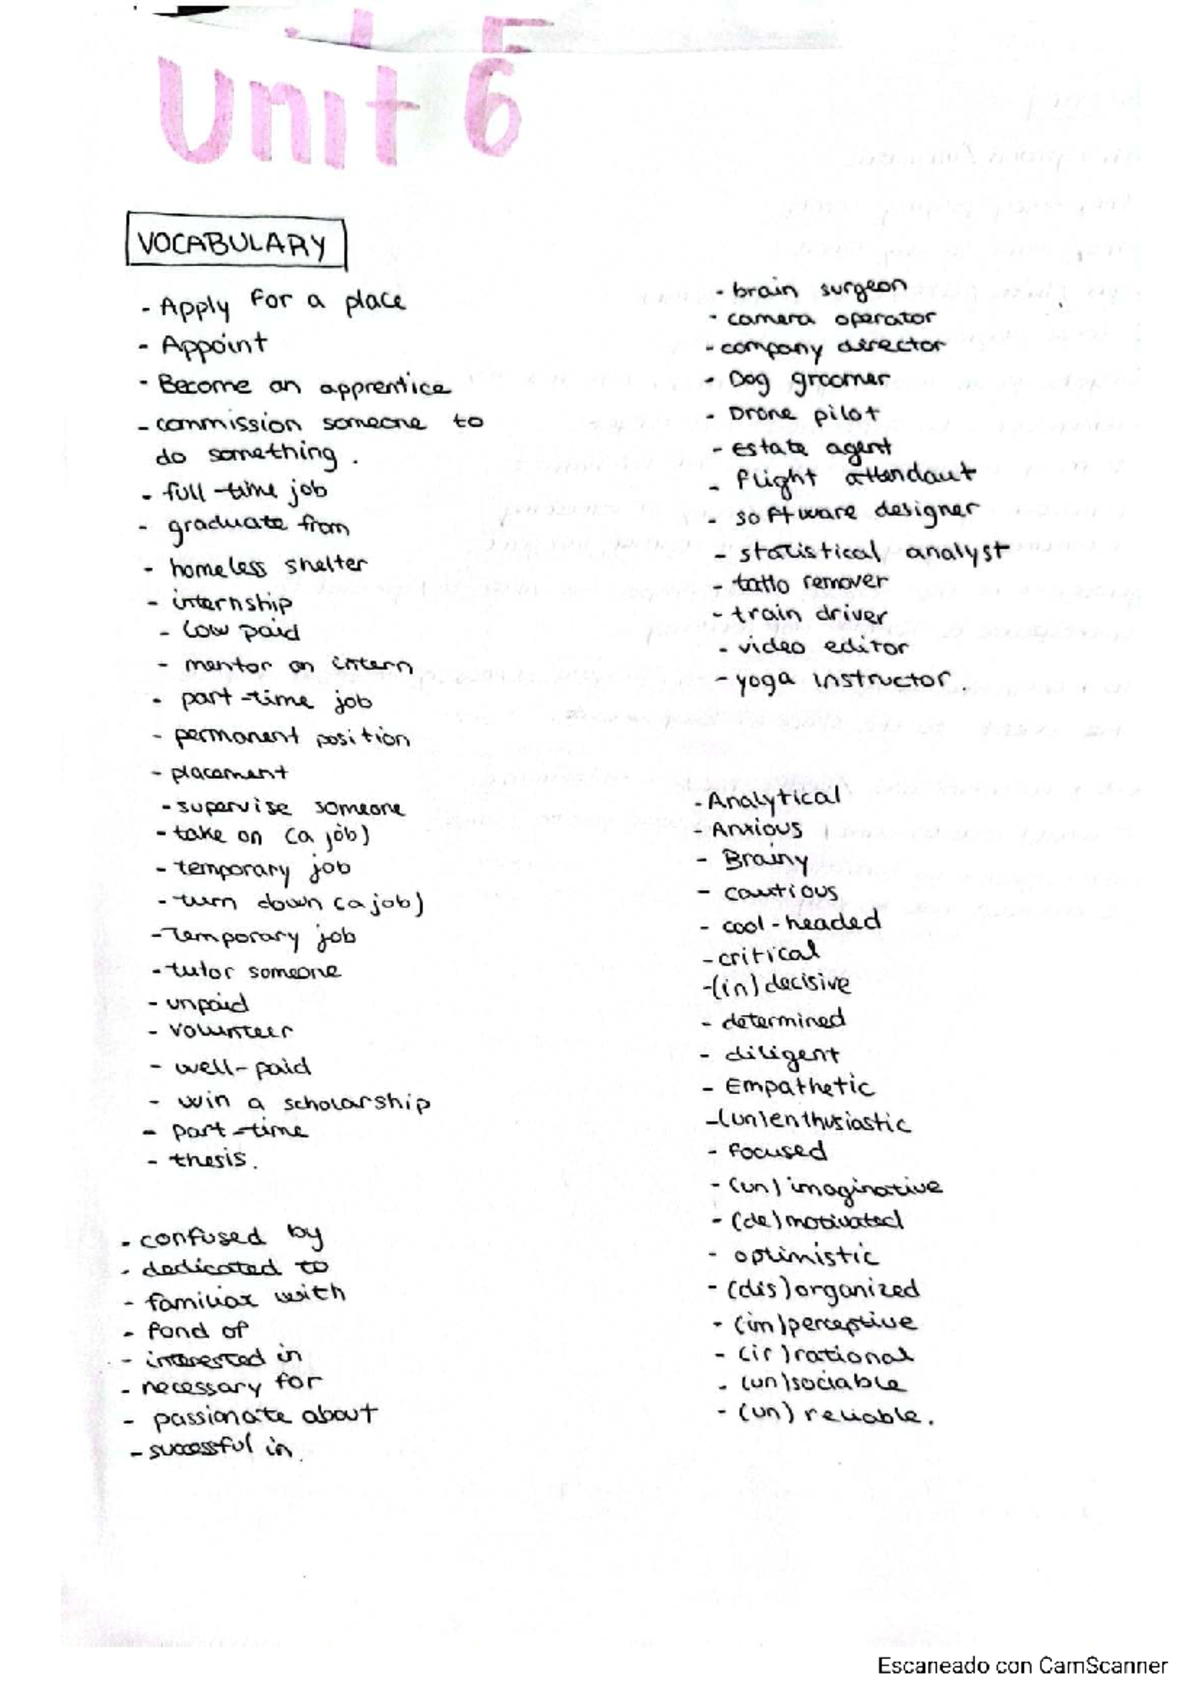 Unit 6
VOCABULARY
- Apply for a place
- Appoint
- Become an apprentice
- commission someone to
do something.
- full-time job
- graduate from
- homeless shelter
- internship
- low paid
- mentor an intern
- part-time job
- permanent position
- placement
- supervise someone
- take on (a job)
- temporary job
- turn down (a job)
- Temporary job
- tutor someone
- unpaid
- volunteer
- well-paid
- win a scholarship
- part-time
- thesis.
- confused by
- dedicated to
- familiar with
- fond of
- interested in
- necessary for
- passionate about
- successful in.
- brain surgeon
- camera operator
- company director
- Dog groomer
- Drone pilot
- estate agent
- flight attendant
- software designer
- statistical analyst
- tatto remover
- train driver
- video editor
- yoga instructor.
- Analytical
- Anxious
- Brainy
- cautious
- cool-headed
- critical
- (in)decisive
- determined
- diligent
- Empathetic
- (un)enthusiastic
- focused
- (un)imaginative
- (de)motivated
- optimistic
- (dis)organized
- (im)perceptive
- (ir)rational
- (un)sociable
- (un) reliable.
Escaneado con CamScanner